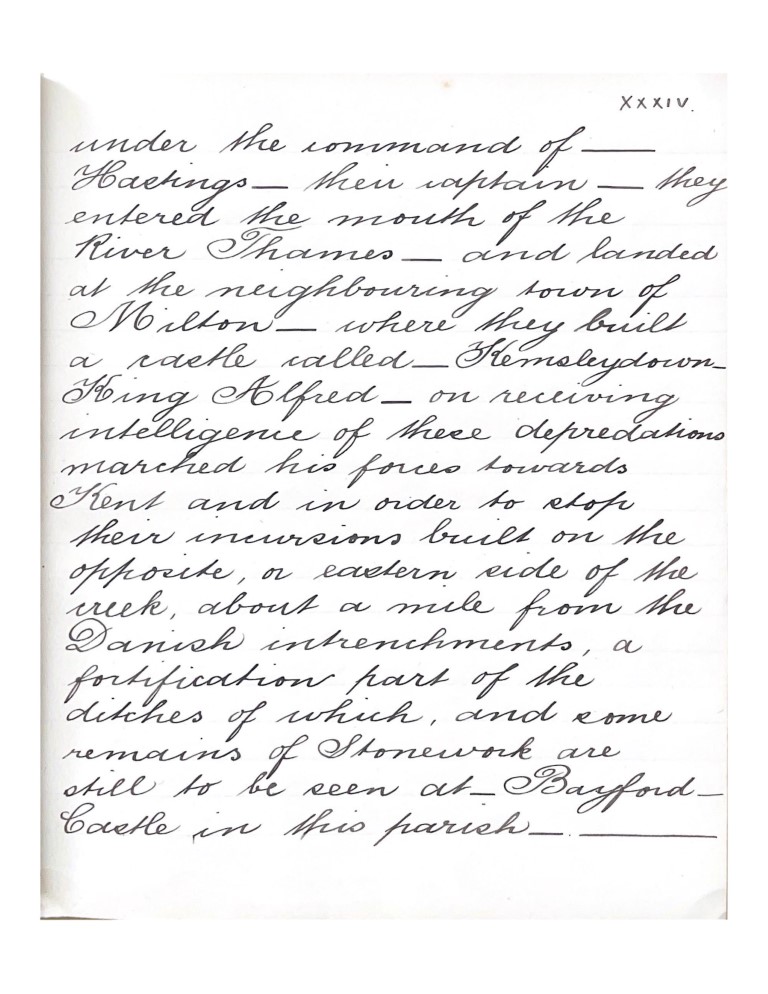 XXXIV.
under the command of —
Hastings — their captain — they
entered the mouth of the
River Thames — and landed
at the neighbouring town of
Milton — where they built
a castle called — Kemsleydown —
King Alfred — on receiving
intelligence of these depredations
marched his forces towards
Kent and in order to stop
their incursions built on the
opposite, or eastern side of the
creek, about a mile from the
Danish intrenchments, a
fortification part of the
ditches of which, and some
remains of Stonework are
still to be seen at — Bayford —
Castle in this parish — . —